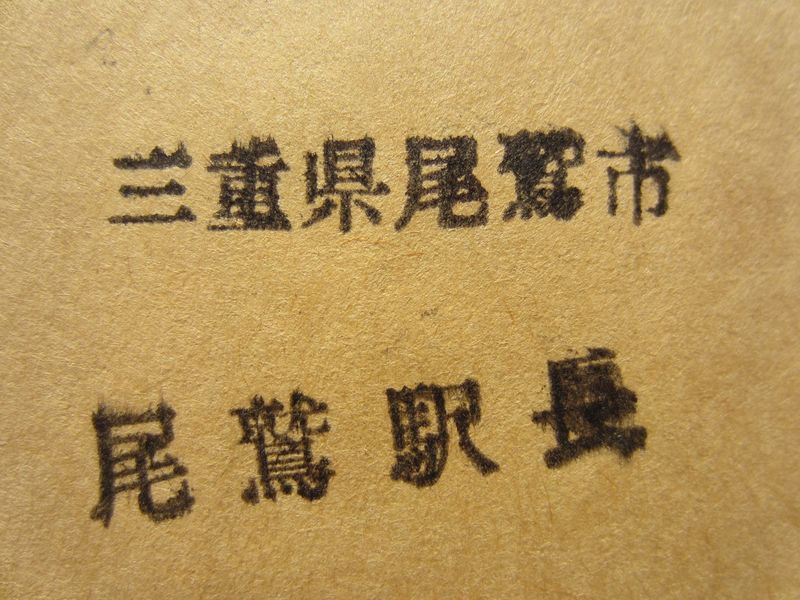 三重県尾鷲市
尾鷲駅長